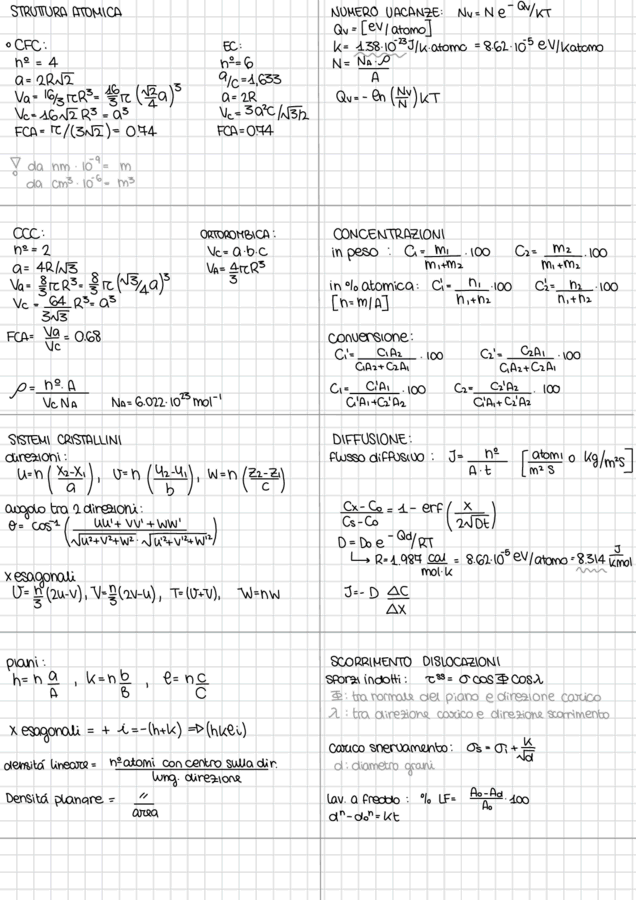 STRUTTURA ATOMICA
° CFC:
nº = 4
a = 2R√2
Va = 16/3 πR³ = 16/3 π (√2/4 a)³
Vc = 16√2 R³ = a³
FCA = π/(3√2) = 0.74
EC:
nº = 6
a/c = 1,633
a = 2R
Vc = 3a²c/√3/2
FCA = 0.74
da nm · 10⁻⁹ = m
da cm³ · 10⁻⁶ = m³
NUMERO VACANZE: Nv = N e^-Qv/KT
Qv = [eV/atomo]
K = 1.38·10⁻²³ J/K·atomo = 8.62·10⁻⁵ eV/K atomo
N = NA·ρ / A
Qv = - ln (Nv/N) KT
CCC:
nº = 2
a = 4R/√3
Va = 8/3 πR³ = 8/3 π (√3/4 a)³
Vc = 64/3√3 R³ = a³
FCA = Va/Vc = 0.68
ρ = nº·A / Vc NA
NA = 6.022·10²³ mol⁻¹
ORTOROMBICA:
Vc = a·b·c
VA = 4/3 πR³
CONCENTRAZIONI
in peso : C₁ = m₁/m₁+m₂ ·100 C₂ = m₂/m₁+m₂ ·100
in % atomica: C₁' = n₁/n₁+n₂ ·100 C₂' = n₂/n₁+n₂ ·100
[n = m/A]
conversione:
C₁' = C₁A₂/C₁A₂+C₂A₁ ·100 C₂' = C₂A₁/C₁A₂+C₂A₁ ·100
C₁ = C₁'A₁/C₁'A₁+C₂'A₂ ·100 C₂ = C₂'A₂/C₁'A₁+C₂'A₂ ·100
SISTEMI CRISTALLINI
direzioni:
u = n (x₂-x₁/a), U = n (y₂-y₁/b), W = n (z₂-z₁/c)
angolo tra 2 direzioni:
θ = cos⁻¹ (uu' + vv' + ww' / √u²+v²+w² · √u'²+v'²+w'²)
x esagonali
U = n/3 (2u-v), V = n/3 (2v-u), T = (U+V), W = nw
DIFFUSIONE:
flusso diffusivo : J = nº/A·t [atomi/m²s o Kg/m²s]
Cx-Co/Cs-Co = 1 - erf (x/2√Dt)
D = Do e^-Qd/RT
↳ R = 1.987 cal/mol·K = 8.62·10⁻⁵ eV/atomo = 8.314 J/Kmol
J = - D ΔC/Δx
piani:
h = n a/A , k = n b/B , l = n c/C
x esagonali = + i = -(h+k) ⇒ (hkli)
densitá lineare = nº atomi con centro sulla dir. / lung. direzione
Densitá planare = " / area
SCORRIMENTO DISLOCAZIONI
sforzi indotti: τᴿˢ = σ cos Φ cos λ
Φ : tra normale del piano e direzione carico
λ : tra direzione carico e direzione scorrimento
carico snervamento: σs = σi + K/√d
d : diametro grani
lav. a freddo : % LF = Ao-Ad/Ao ·100
dⁿ - doⁿ = Kt